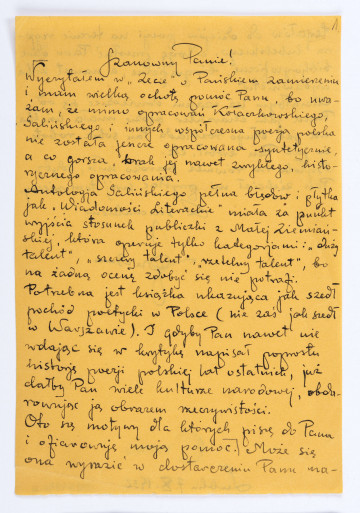 1
Szanowny Panie!
Wyczytałem w „Zecie” o Pańskiem zamierzeniu
i mam wielką ochotę pomóc Panu, bo uwa-
żam, że mimo opracowań Kołaczkowskiego,
Galińskiego i innych współczesna poezja polska
nie została jeszcze opracowana syntetycznie,
a co gorsza, brak jej nawet zwykłego, histo-
rycznego opracowania.
Antologja Galińskiego pełna błędów i płytka
jak „Wiadomości Literackie” miała za punkt
wyjścia stosunek publiczki z Małej Ziemiań-
skiej, która operuje tylko kategorjami: „duży
talent”, „szczery talent”, „rzetelny talent”, bo
na żadną ocenę zdobyć się nie potrafi.
Potrzebna jest książka ukazująca jak szedł
pochód poetycki w Polsce (nie zaś jak szedł
w Warszawie). I gdyby Pan nawet nie
wdając się w krytykę napisał poprostu
historję poezji polskiej lat ostatnich, już
dałby Pan wiele kulturze narodowej, obda-
rowując ją obrazem rzeczywistości.
Oto są motywy dla których piszę do Pana
i ofiarowuję moją pomoc. Może się
ona wyrazić w dostarczeniu Panu ma-